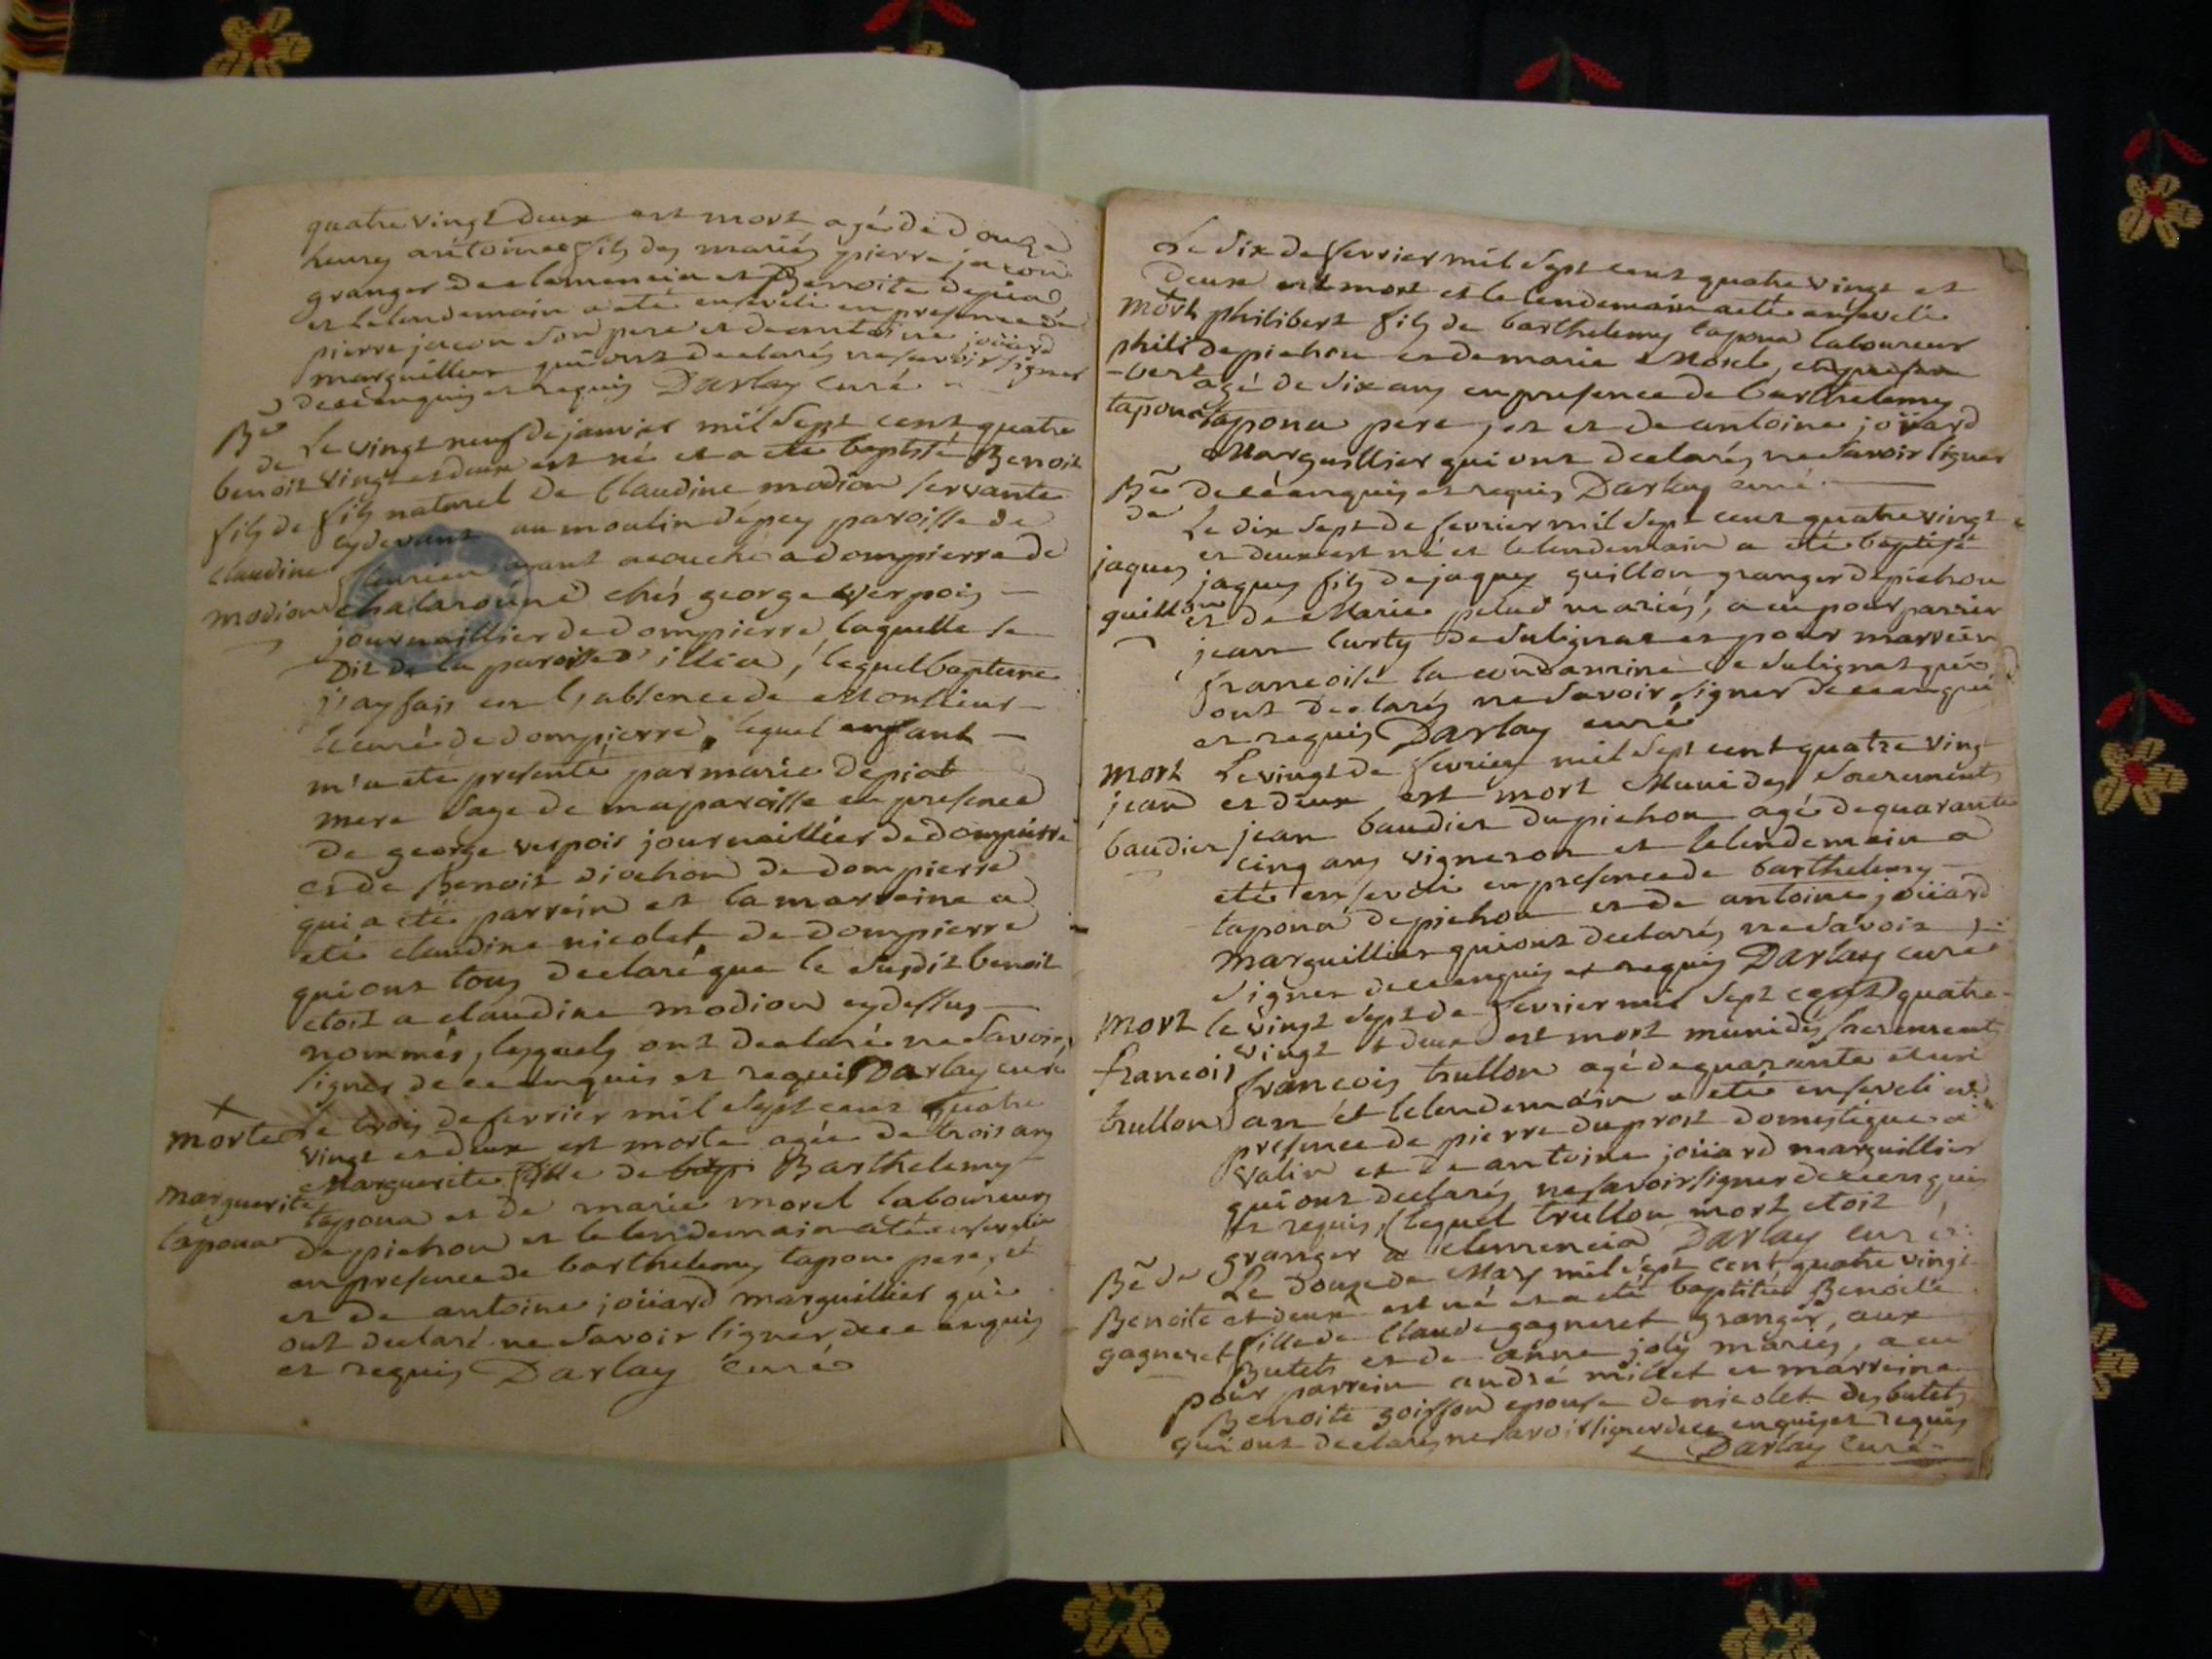 quatre vingt deux est mort agé de douze
heures antoine fils des mariés pierre jacon
granger de clemencia et Benoite depiad
et le lendemain a eté enseveli en presence de
pierre jacon son pere et de antoine joüard
marguillier qui ont declarés ne savoir signer
de ce enquis et requis Darlay Curé
Be
de Le vingt neuf de janvier mil sept cent quatre
benoit vingt et deux est né et a eté baptisé Benoit
fils de fils naturel de Claudine modion servante
cydevant au moulin depey paroisse de
claudine ayant acouché a dompierre de
modion chalaronne chés george verpois
journaillier de dompierre, laquelle se
dit de la paroisse d'illia, lequel bapteme
j'ay fais en l'absence de Monsieur
le curé de dompierre, lequel enfant
m'a eté presenté par marie depiat
mere sage de ma paroisse en presence
de george verpois journaillier de dompierre
et de Benoit diochon de dompierre
qui a eté parrein et la marreine a
eté claudine nicolet de dompierre
qui ont tous declaré que le susdit benoit
etoit a claudine modion cydessus
nommés, lesquels ont declaré ne savoir
signer de ce enquis et requis Darlay curé
morte Le trois de fevrier mil sept cent quatre
vingt et deux est morte agée de trois ans
marguerite Marguerite fille de Barthelemy
tapona et de marie morel laboureurs
tapona de pichon et le lendemain a eté ensevelie
en presence de barthelemy tapona pere, et
et de antoine joüard marguillier qui
ont declaré ne savoir signer de ce enquis
et requis Darlay Curé
Le six de fevrier mil sept cent quatre vingt et
deux est mort et le lendemain a eté enseveli
mort philibert fils de barthelemy tapona laboureur
phili de pichon et de marie Morel,
-bert agé de six ans en presence de barthelemy
tapona tapona pere, et et de antoine joüard
Marguillier qui ont declarés ne savoir signer
Be de ce enquis et requis Darlay curé
de Le dix sept de fevrier mil sept cent quatre vingt
et deux est né et le lendemain a eté baptisé
jaques jaques fils de jaques guillon granger de pichon
guillon et de Marie pelud mariés, a eu pour parrein
jean curty de sulignat et pour marreine
francoise la condamine de sulignat qui
ont declarés ne savoir signer de ce enquis
et requis Darlay curé
mort Le vingt de fevrier mil sept cent quatre ving
jean et deux est mort Muni des sacrements
baudier jean baudier du pichon agé de quarante
cinq ans vigneron et le lendemain a
eté enseveli en presence de barthelemy
tapona de pichon et de antoine joüard
marguillier qui ont declarés ne savoir
signer de ce enquis et requis Darlay curé
mort le vingt sept de fevrier mil sept cent quatre-
vingt et deux est mort muni des sacrements
francois francois trullon agé de quarante et un
trullon an et le lendemain a eté enseveli en
presence de pierre duprost domestique a
valin et de antoine joüard marguillier
qui ont declarés ne savoir signer de ce enquis
et requis, lequel trullon mort etoit
granger a clemencia Darlay curé
Be de Le douze de May mil sept cent quatre vingt
Benoite et deux est né et a eté baptisée Benoite
gagneret fille de Claude gagneret granger, aux
Butets et de anne joly mariés, a eu
pour parrein andré millet et marreine
Benoite goisson epouse de nicolet des butets
qui ont declarés ne savoir signer de ce enquis et requis
Darlay Curé